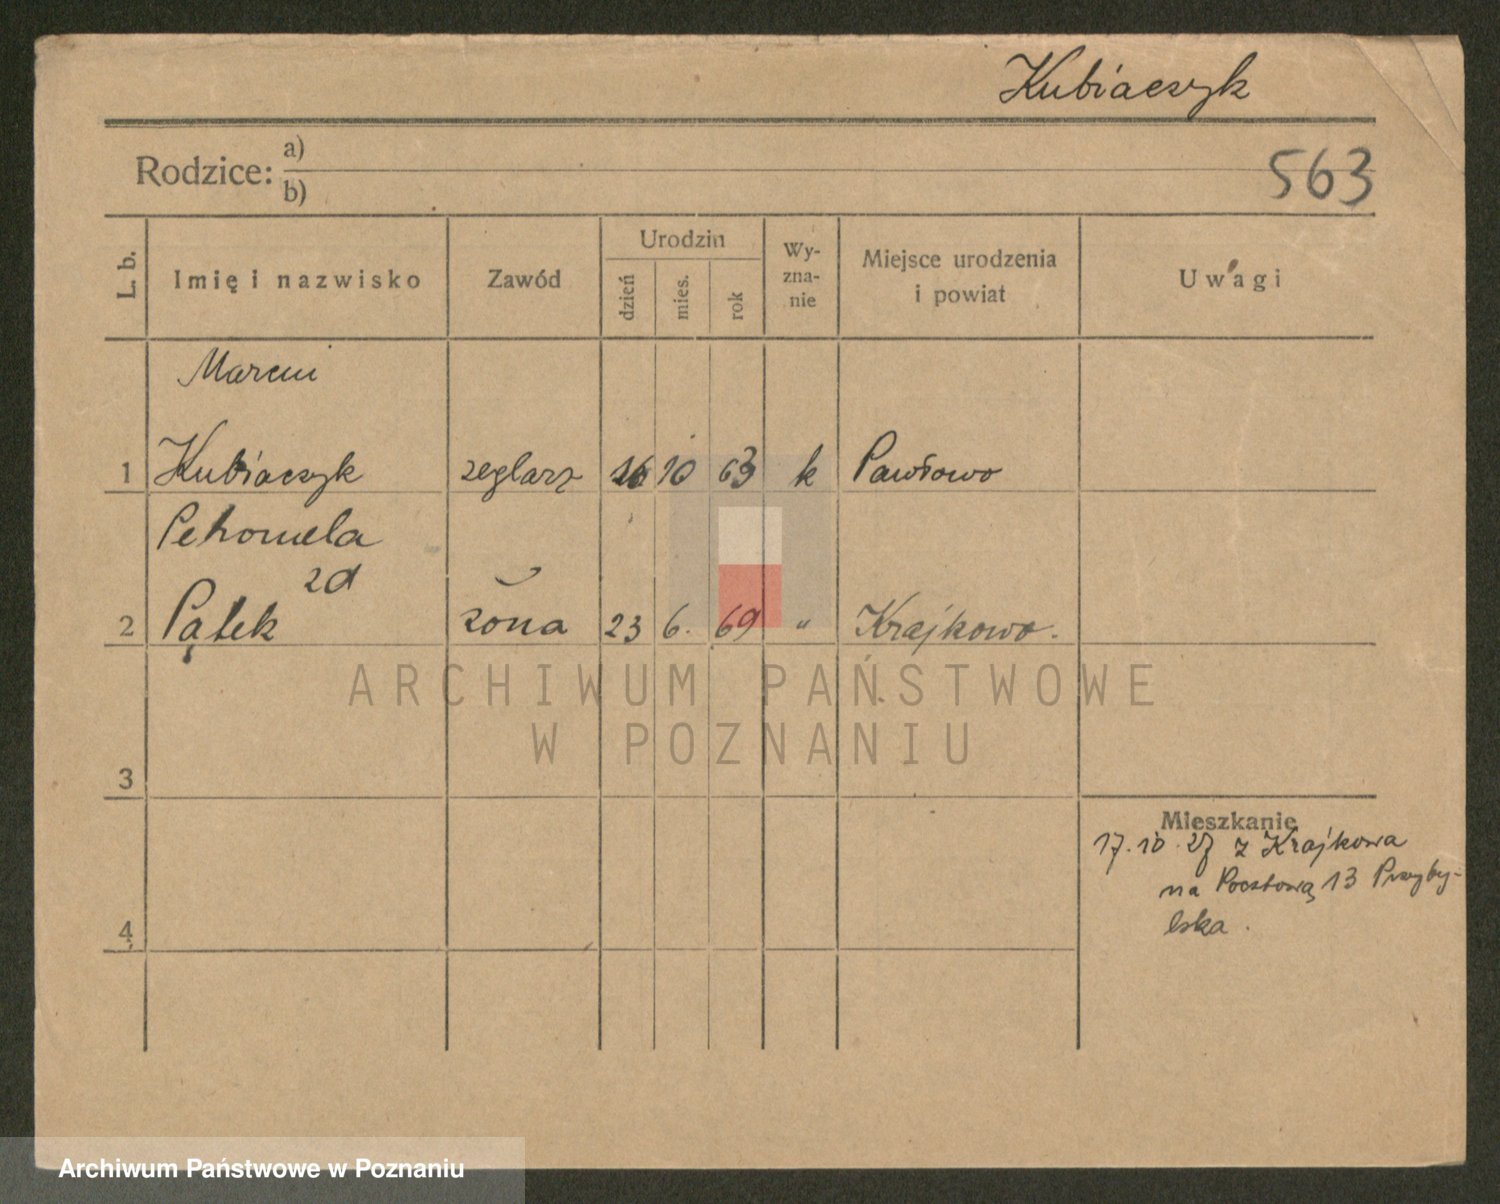 Kubiaczyk
Rodzice: a)
b)
563
L. b.
Imię i nazwisko
Zawód
Urodzin
dzień
mies.
rok
Wy-
zna-
nie
Miejsce urodzenia
i powiat
Uwagi
Marcin
1 Kubiaczyk żeglarz 26 10 63 k Pawłowo
Petronela
zd
2 Pątek żona 23 6. 69 " Krajkowo.
ARCHIWUM PAŃSTWOWE
W POZNANIU
3
Mieszkanie
17.10.27 z Krajkowa
na Pocztową 13 Przyby-
lska.
4
Archiwum Państwowe w Poznaniu